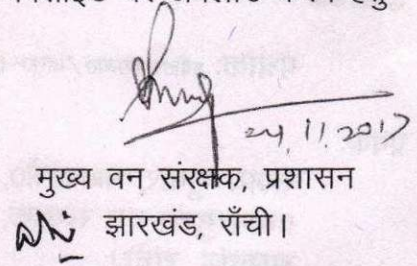 24.11.2017
मुख्य वन संरक्षक, प्रशासन
झारखंड, राँची।